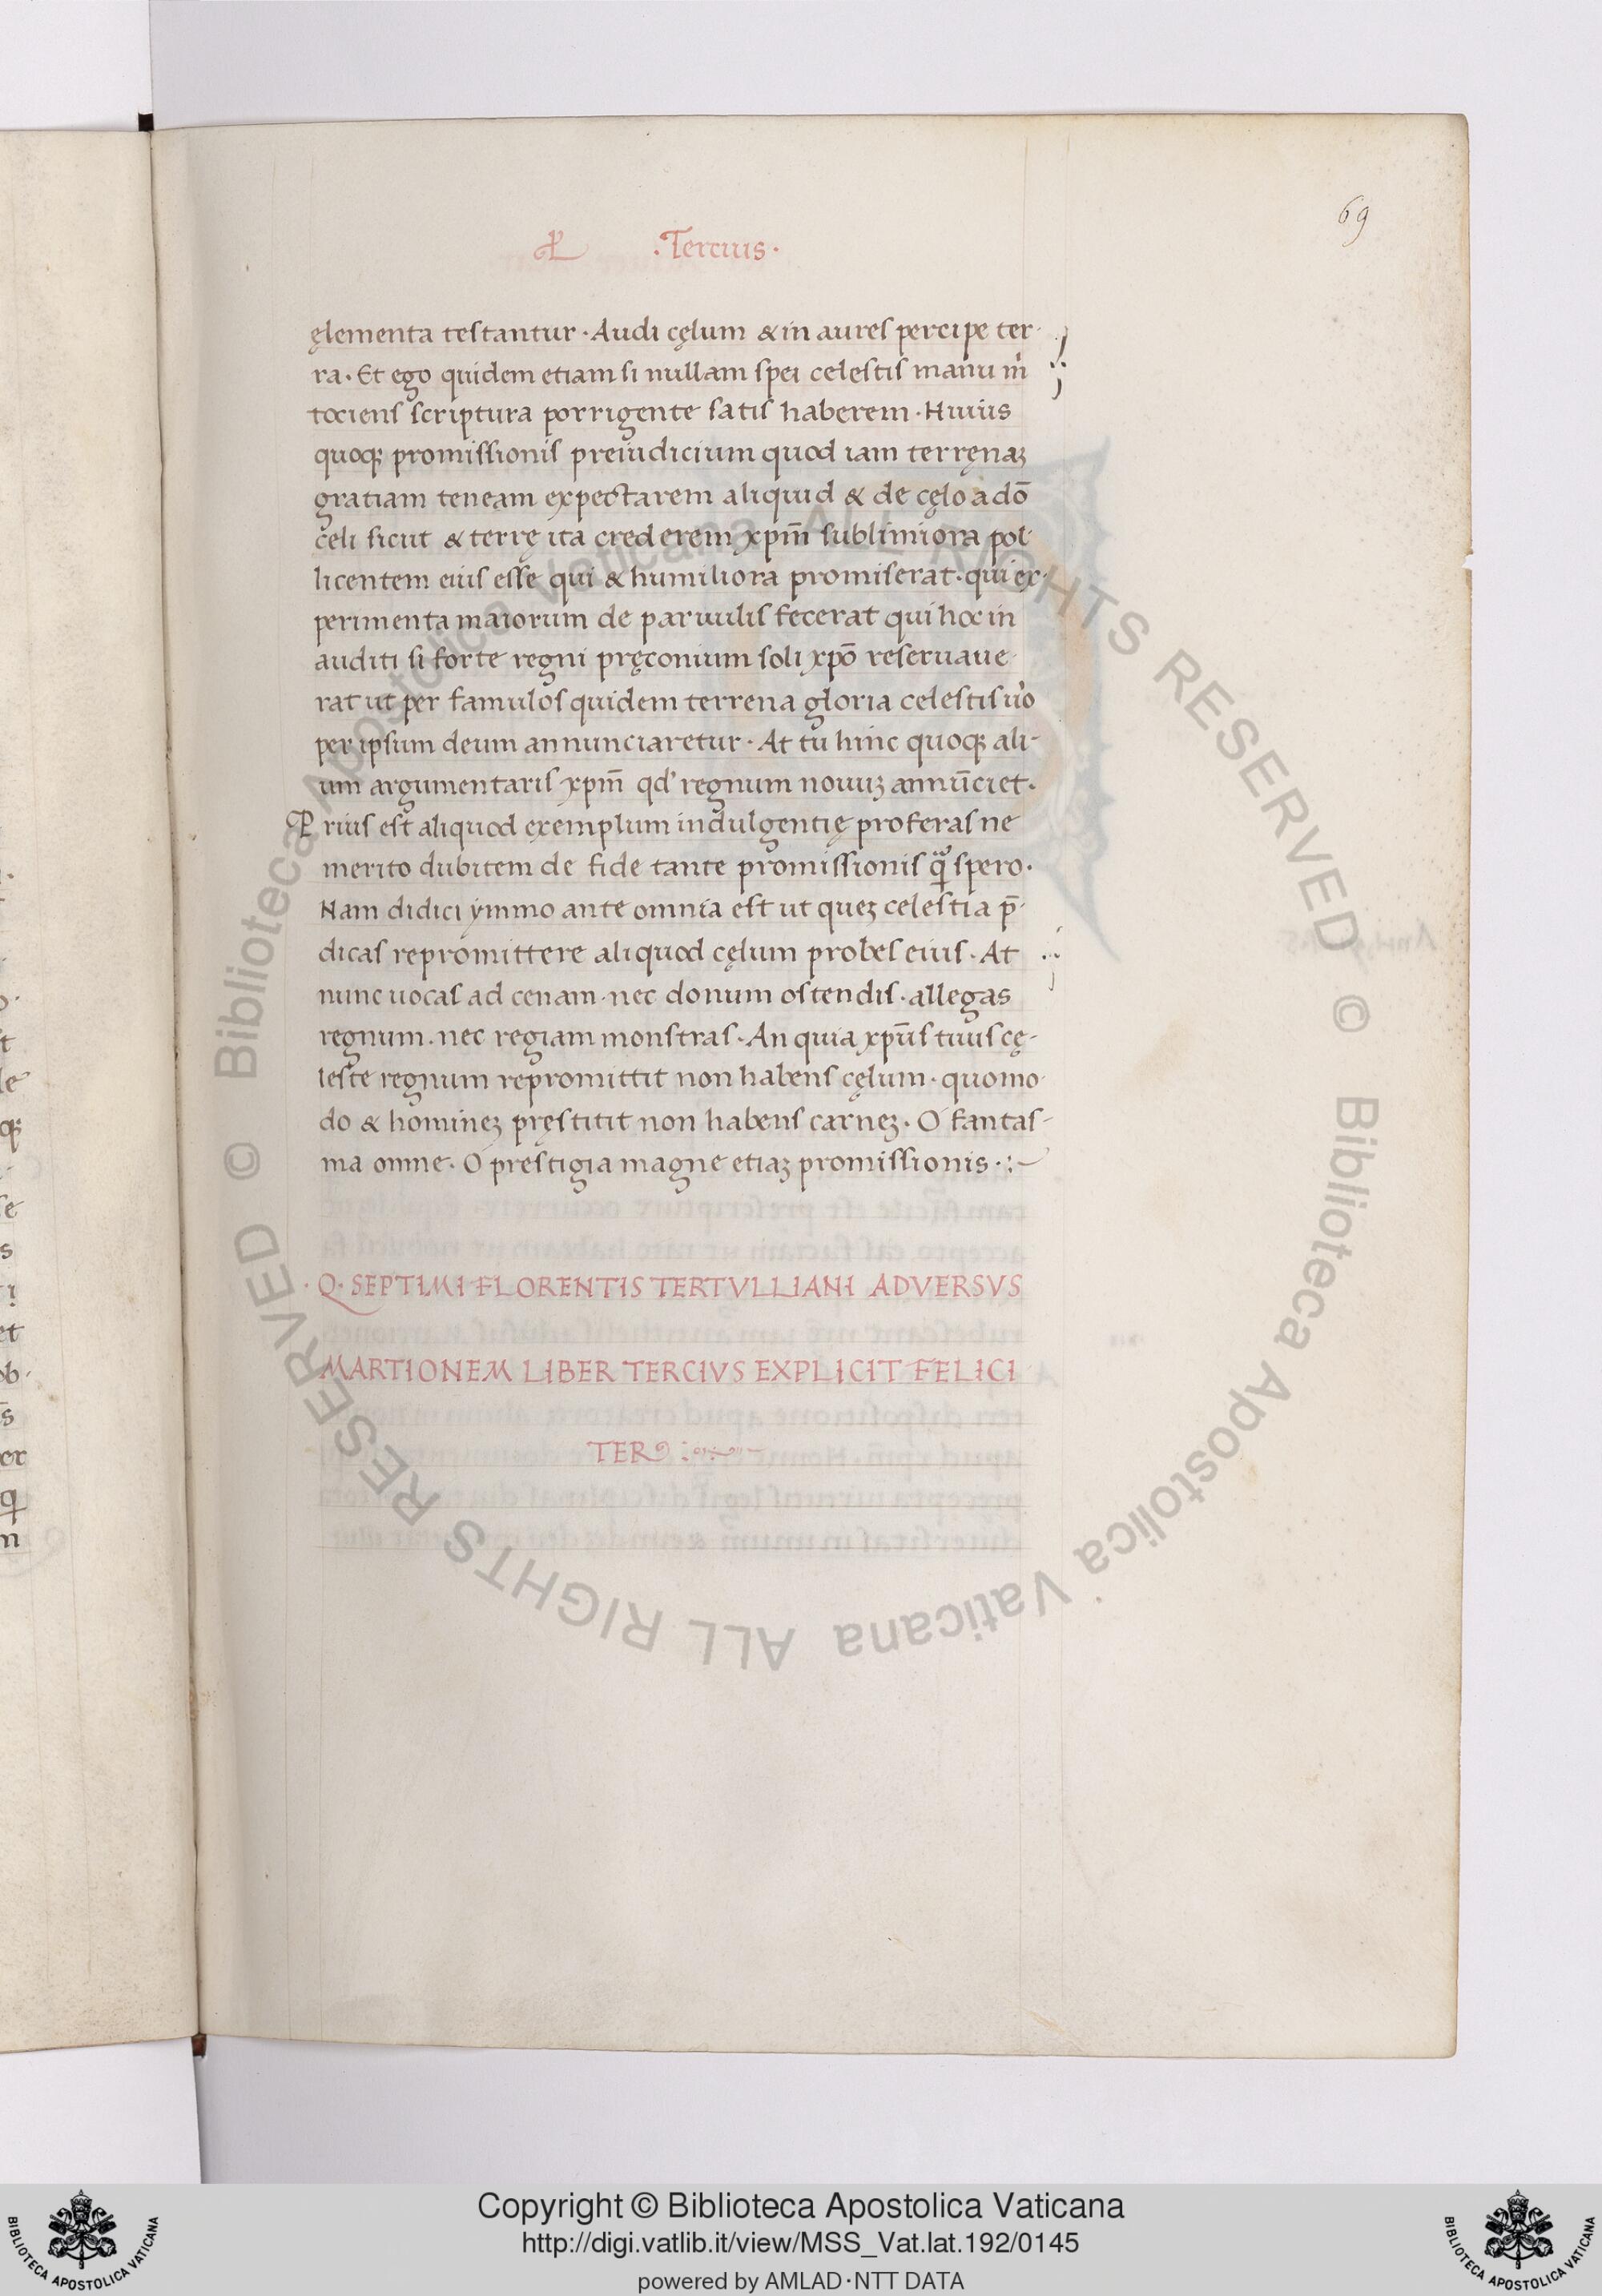 69
.Tercius.
ęlementa testantur · Audi cęlum & in aures percipe ter-
ra · Et ego quidem etiam si nullam spei celestis manū m̄
tociens scriptura porrigente satis haberem · Huius
quoqꝫ promissionis preiudicium quod iam terręnaꝫ
gratiam teneam expectarem aliquid & de cęlo a dō
celi sicut & terrę ita crederem xp̄m sublimiora pol-
licentem eius esse qui & humiliora promiserat · qui ex-
perimenta maiorum de paruulis fecerat qui hoc in
auditi si forte regni pręconium soli xp̄o reseruaue-
rat ut per famulos quidem terrena gloria celestis uo
per ipsum deum annunciaretur · At tu hinc quoqꝫ ali-
um argumentaris xp̄m qd' regnum nouuꝫ annūciet ·
Prius est aliquod exemplum indulgentię proferas ne
merito dubitem de fide tante promissionis spero ·
Nam didici ymmo ante omnia est ut queꝫ celestia p̄-
dicas repromittere aliquod cęlum probes eius · At
nunc uocas ad cenam · nec donum ostendis · allegas
regnum · nec regiam monstras · An quia xp̄us tuus cę-
leste regnum repromittit non habens cęlum · quomo-
do & homineꝫ pręstitit non habens carneꝫ · O fantas-
ma omne · O prestigia magne etiaꝫ promissionis · :~
· Q · SEPTIMI FLORENTIS TERTVLLIANI ADVERSVS
MARTIONEM LIBER TERCIVS EXPLICIT FELICI
TER
© Biblioteca Apostolica Vaticana ALL RIGHTS RESERVED
© Biblioteca Apostolica Vaticana ALL RIGHTS RESERVED
Copyright © Biblioteca Apostolica Vaticana
http://digi.vatlib.it/view/MSS_Vat.lat.192/0145
powered by AMLAD·NTT DATA
BIBLIOTECA APOSTOLICA VATICANA
BIBLIOTECA APOSTOLICA VATICANA